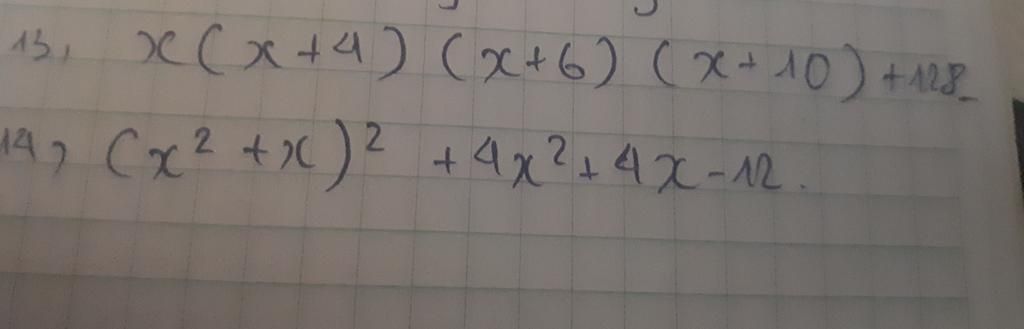 13, x(x+4)(x+6)(x+10)+128
14, (x²+x)²+4x²+4x-12.